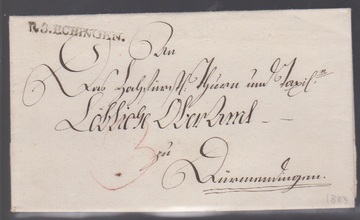 R.3.ECHINGEN.
An
Das Hochfürstl: Thurn und Taxis:
Löbliche Oberamt - -
3
zu
Dürmendingen.